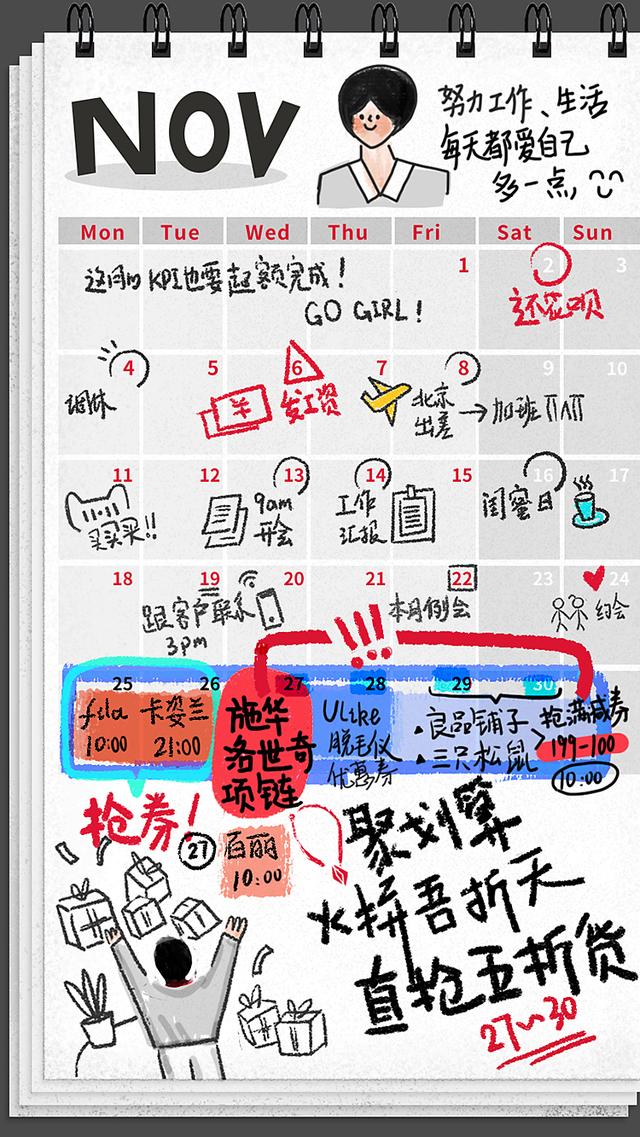 NOV
努力工作、生活
每天都爱自己
多一点,
Mon Tue Wed Thu Fri Sat Sun
这月的KPI也要超额完成!
GO GIRL!
1 2 3
还花呗
4 5 6 7 8 9 10
调休
¥
发工资
北京
出差
加班
11 12 13 14 15 16 17
买买买!!
9am
开会
工作
汇报
闺蜜日
18 19 20 21 22 23 24
跟客户联系
3pm
本月例会
约会
!!!
25 26 27 28 29 30
fila
10:00
卡姿兰
21:00
施华
洛世奇
项链
Ulike
脱毛仪
优惠券
良品铺子
三只松鼠
抢满减券
199-100
10:00
抢券!
27
百丽
10:00
聚划算
火拼吾折天
直抢五折货
27~30